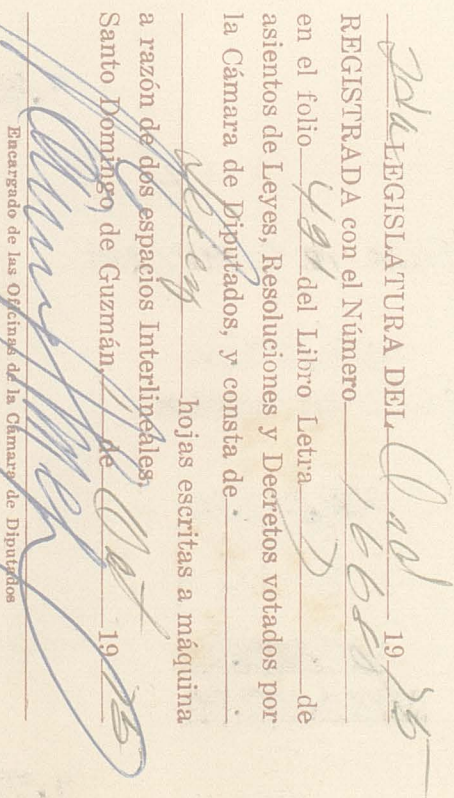 2da LEGISLATURA DEL Ord 19
REGISTRADA con el Número
en el folio 491 del Libro Letra de
asientos de Leyes, Resoluciones y Decretos votados por
la Cámara de Diputados, y consta de
hojas escritas a máquina
a razón de dos espacios Interlineales
Santo Domingo, de Guzmán, de Oct 19
Encargado de las Oficinas de la Cámara de Diputados